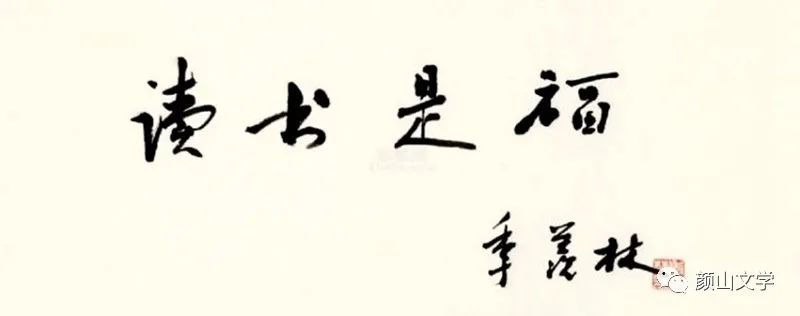 读书是福
季羡林
颜山文学